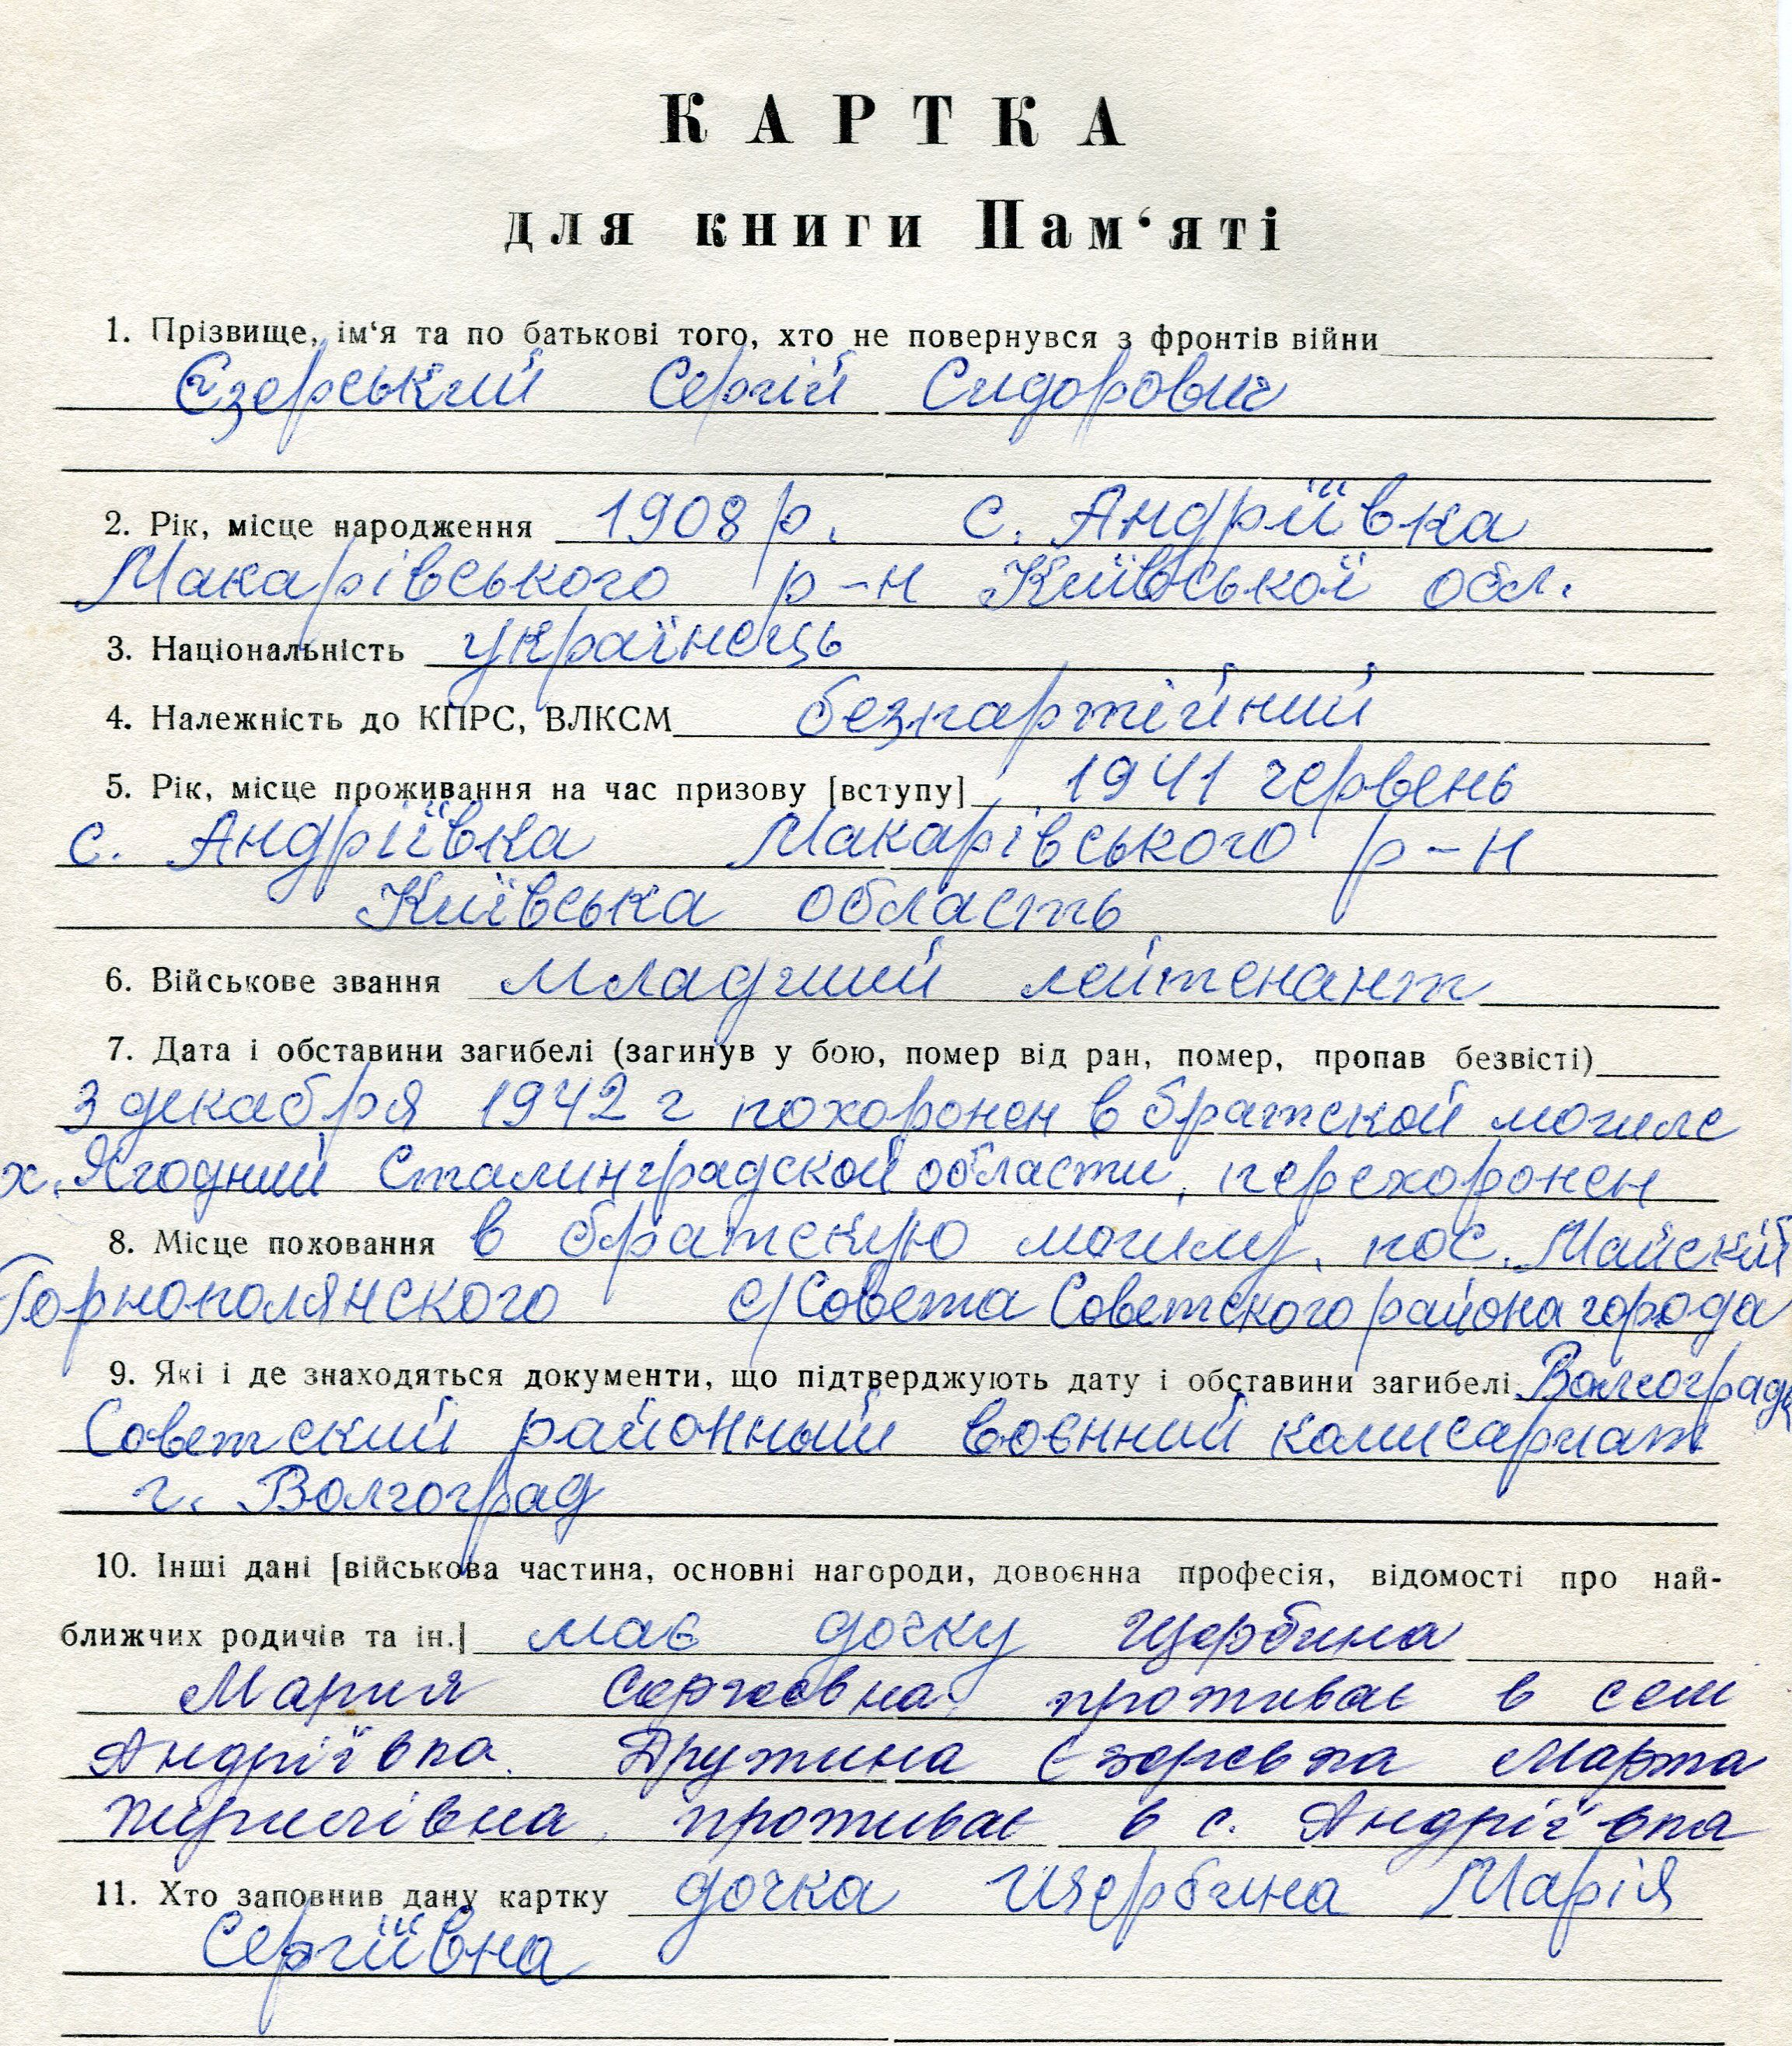 КАРТКА
для книги Пам‘яті
1. Прізвище, ім‘я та по батькові того, хто не повернувся з фронтів війни
Єзерський Сергій Сидорович
2. Рік, місце народження 1908 р. с. Андріївка
Макарівського р-н Київської обл.
3. Національність українець
4. Належність до КПРС, ВЛКСМ безпартійний
5. Рік, місце проживання на час призову [вступу] 1941 червень
с. Андріївка Макарівського р-н
Київська область
6. Військове звання младший лейтенант
7. Дата і обставини загибелі (загинув у бою, помер від ран, помер, пропав безвісті)
3 декабря 1942 г похоронен в братской могиле
х. Ягодний Сталинградской области, перехоронен
8. Місце поховання в братскую могилу, пос. Майский
Горнополянского с/Совета Советского района города
9. Які і де знаходяться документи, що підтверджують дату і обставини загибелі Волгограда
Советский районный воєнний комисариат
г. Волгоград
10. Інші дані [військова частина, основні нагороди, довоєнна професія, відомості про най-
ближчих родичів та ін.] має дочку Щербина
Мария Сергеевна, проживає в селі
Андріївка. Дружина Єзерська Марта
проживає в с. Андріївка
11. Хто заповнив дану картку дочка Щербина Марія
Сергіївна